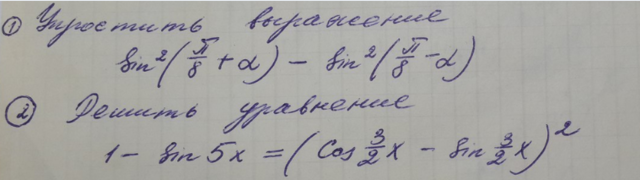 ① Упростить выражение
sin²(π/8 + α) - sin²(π/8 - α)
② Решить уравнение
1 - sin 5x = (cos 3/2 x - sin 3/2 x)²